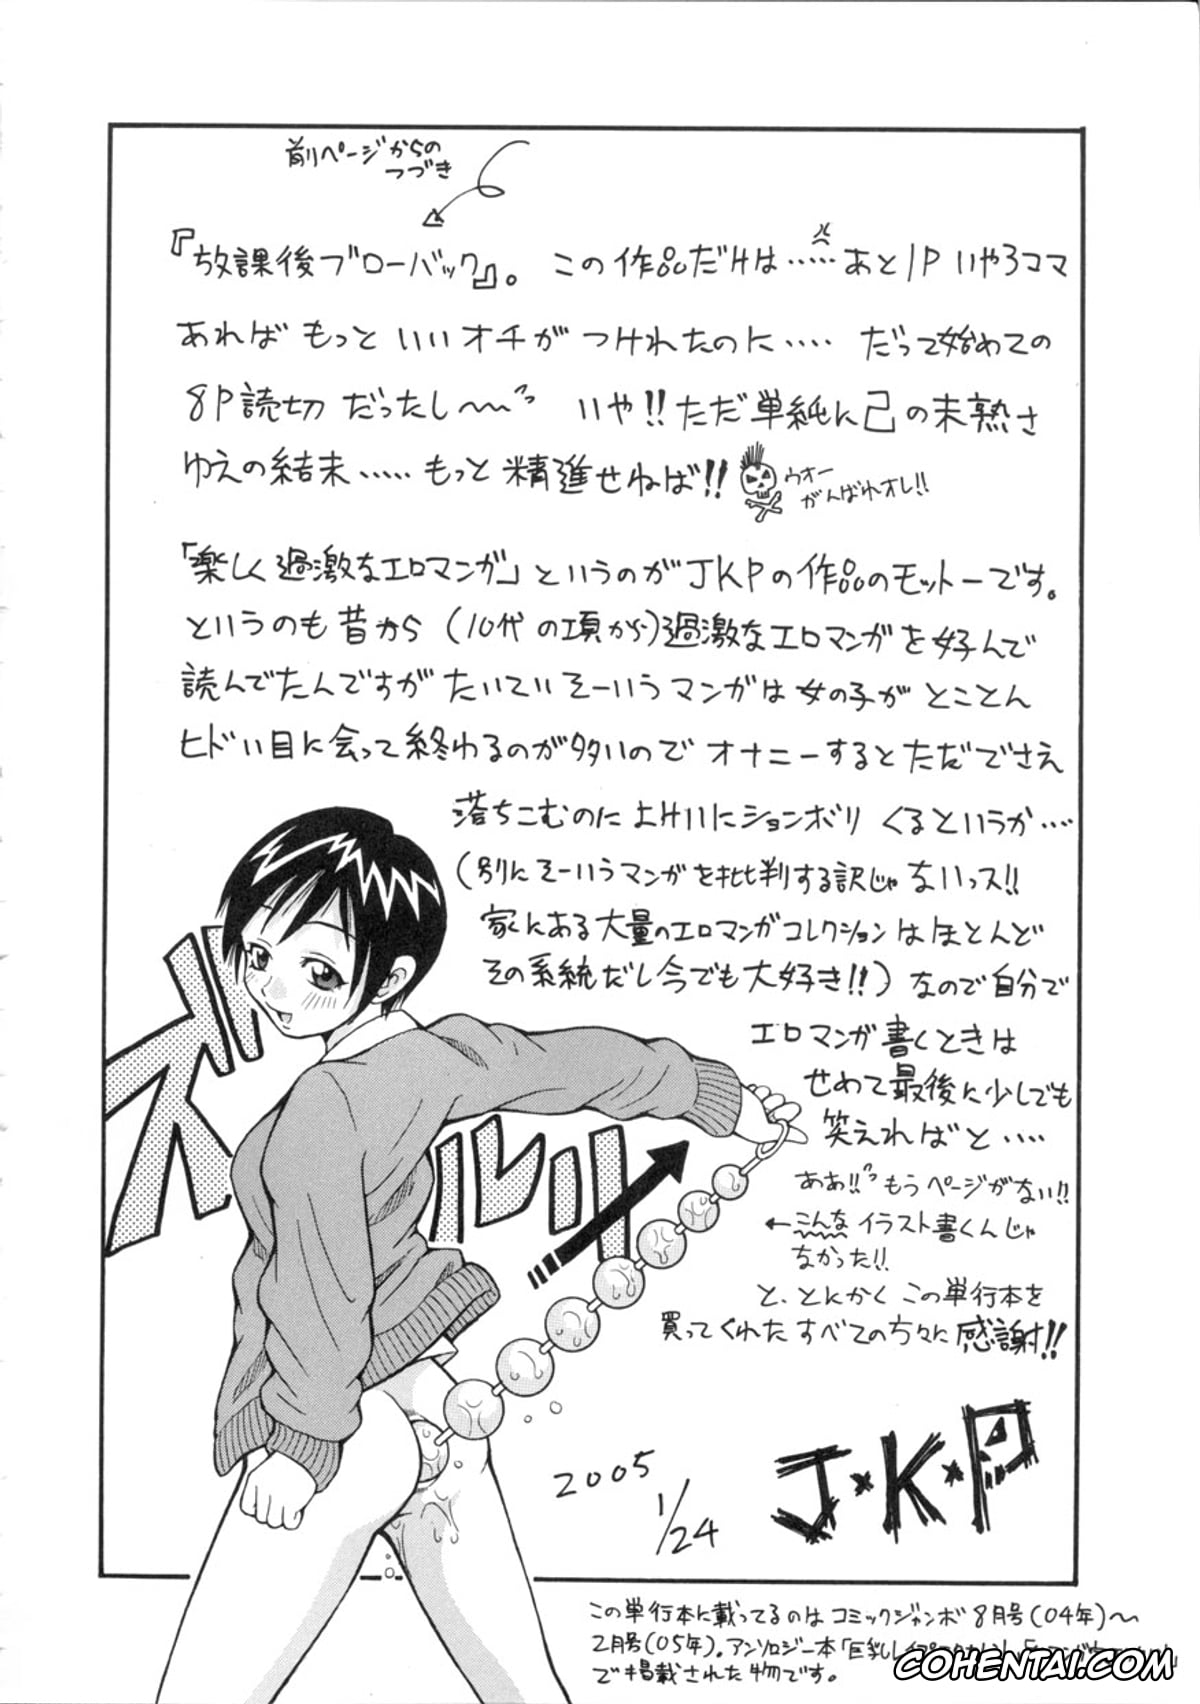 前ページからの
つづき
『放課後ブローバック』。この作品だけは……あと1P いや3コマ
あればもっといいオチがつけれたのに…. だって始めての
8P読切だったし〜〜 いや!!ただ単純に己の未熟さ
ゆえの結末……もっと精進せねば!!
ウオー
がんばれオレ!!
「楽しく過激なエロマンガ」というのがJKPの作品のモットーです。
というのも昔から(10代の頃から)過激なエロマンガを好んで
読んでたんですがたいていそーいうマンガは女の子がとことん
ヒドい目に会って終わるのが多いのでオナニーするとただでさえ
落ちこむのによけいにションボリくるというか….
(別にそーいうマンガを批判する訳じゃないっス!!
家にある大量のエロマンガコレクションはほとんど
その系統だし今でも大好き!!)なので自分で
エロマンガ書くときは
せめて最後に少しでも
笑えればと….
ああ!!もうページがない!!
←こんなイラスト書くんじゃ
なかった!!
と、とにかくこの単行本を
買ってくれたすべての方々に感謝!!
ズルルリ
2005
1/24
J・K・P
この単行本に載ってるのはコミックジャンボ8月号(04年)〜
2月号(05年)。アンソロジー本「巨乳
で掲載された物です。
COHENTAI.COM